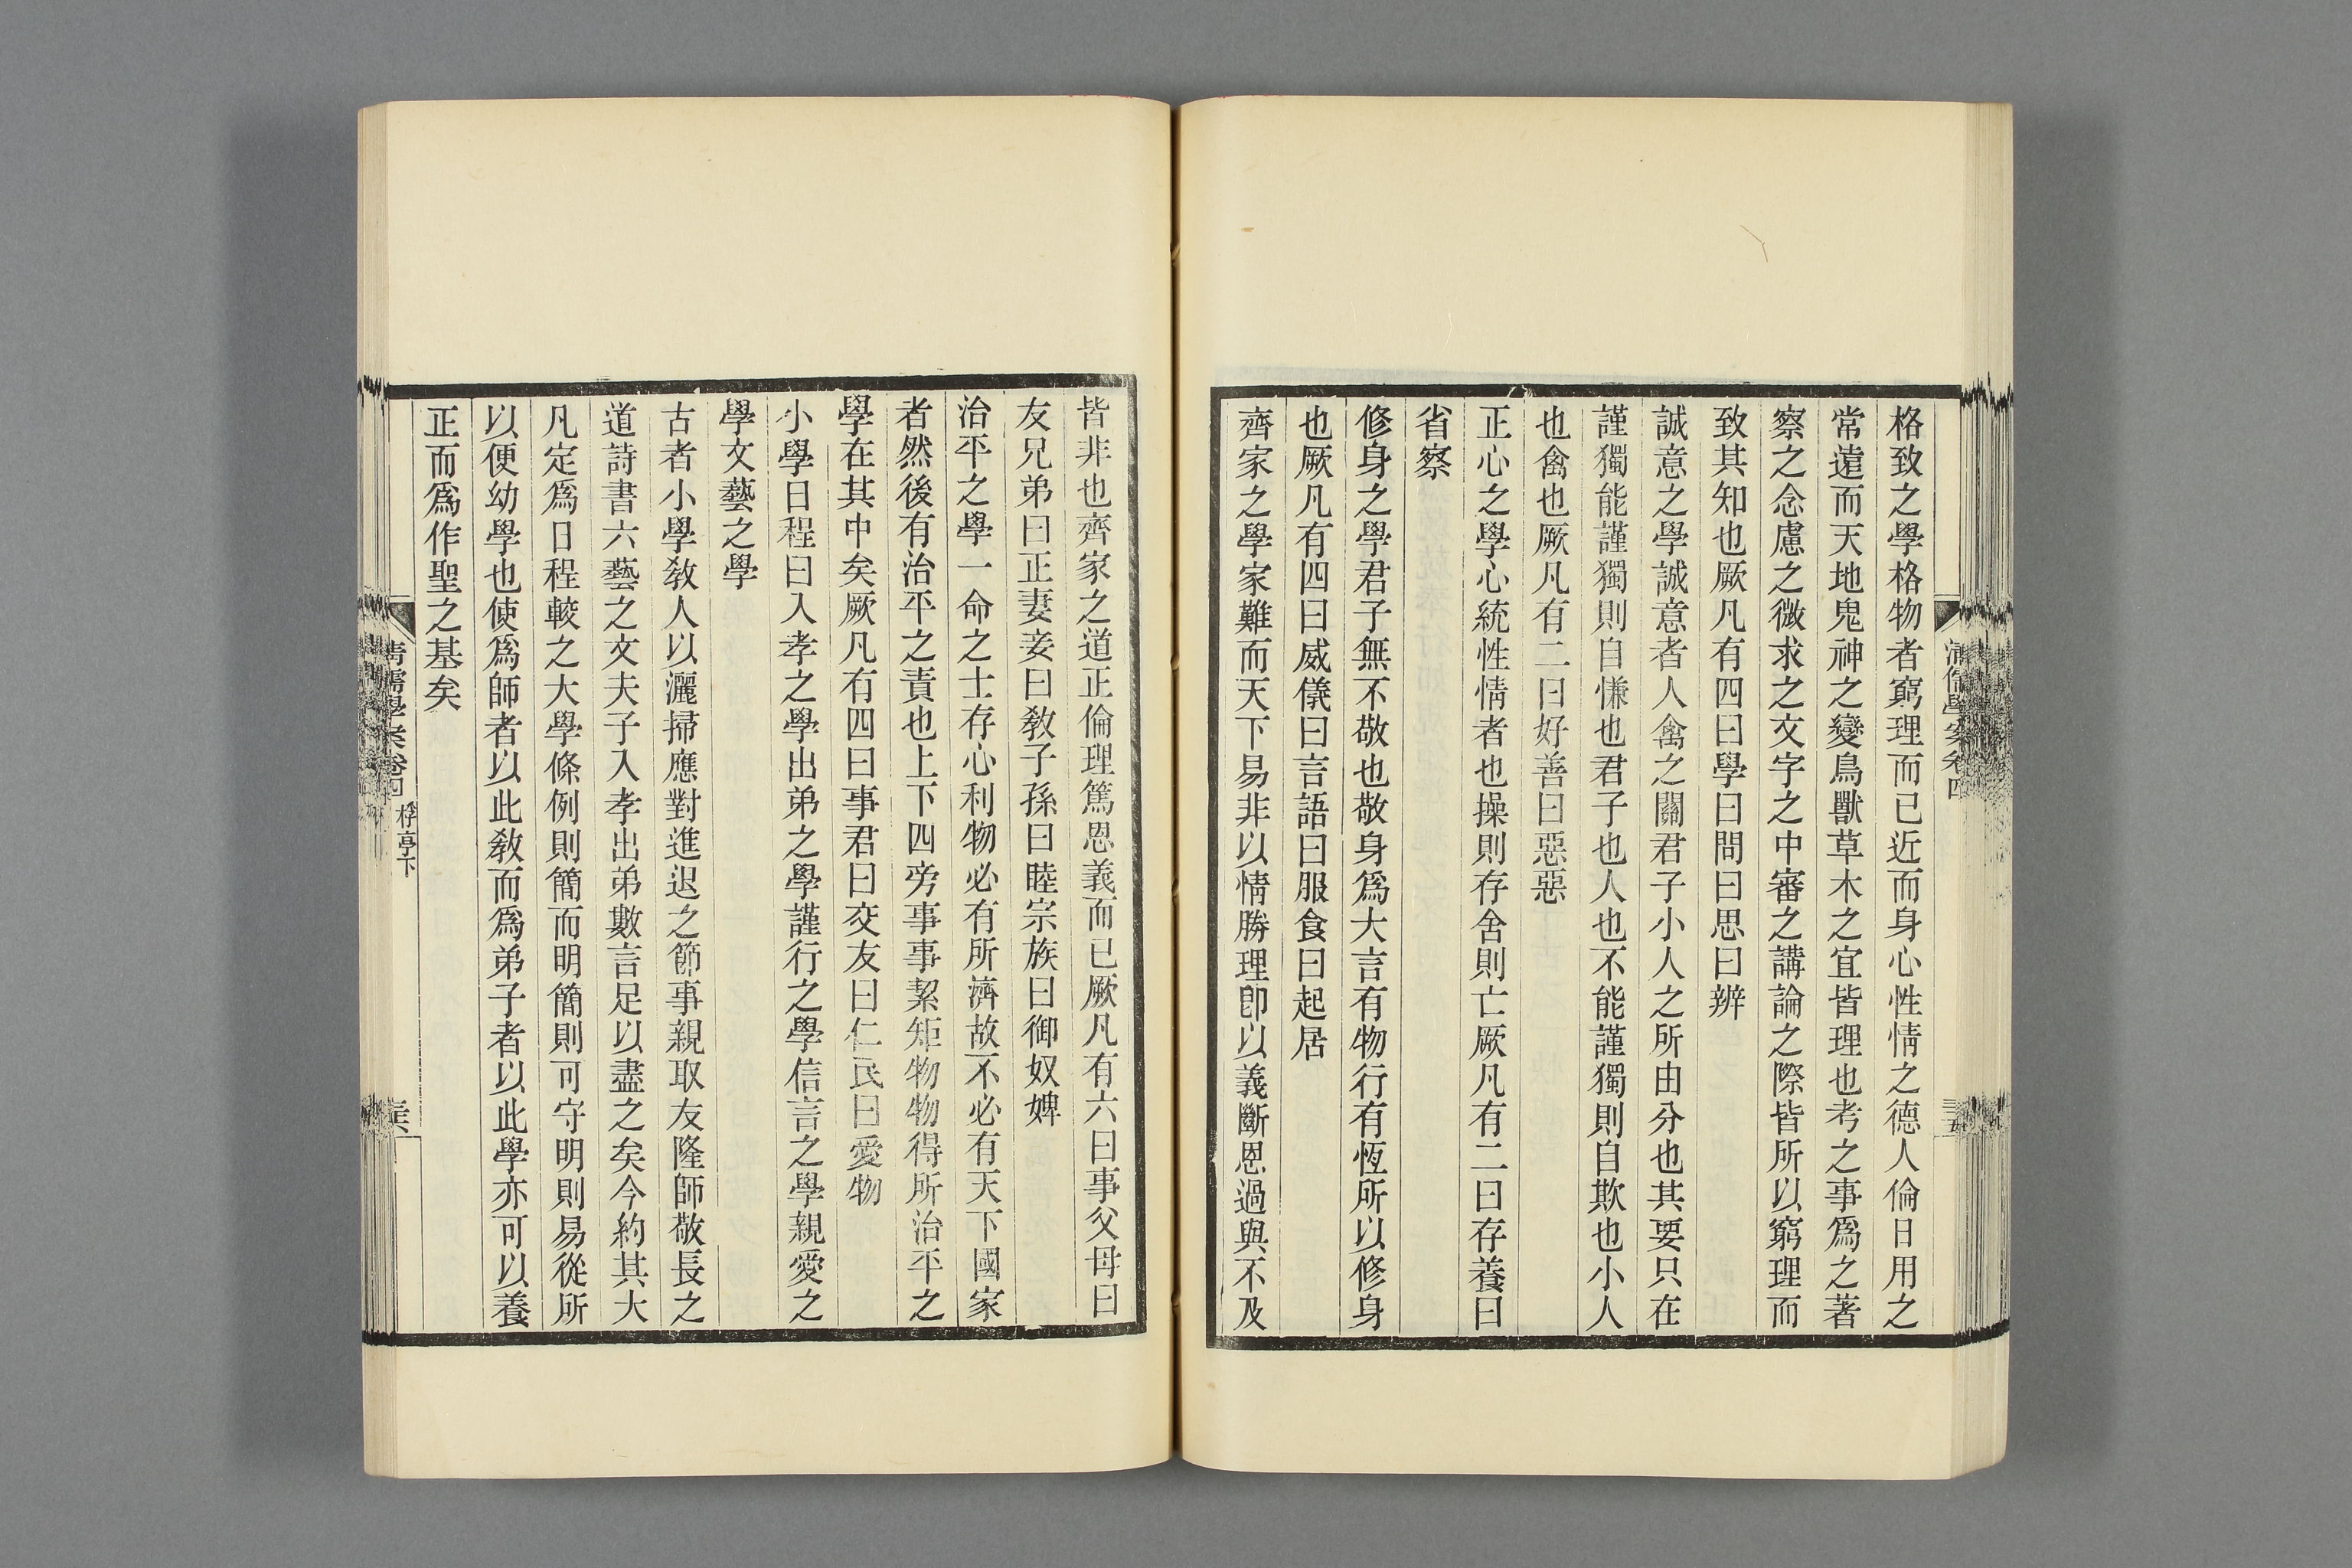 格致之學格物者窮理而已近而身心性情之德人倫日用之
常遠而天地鬼神之變鳥獸草木之宜皆理也考之事爲之著
察之念慮之微求之文字之中審之講論之際皆所以窮理而
致其知也厥凡有四曰學曰問曰思曰辨
誠意之學誠意者人禽之關君子小人之所由分也其要只在
謹獨能謹獨則自慊也君子也人也不能謹獨則自欺也小人
也禽也厥凡有二曰好善曰惡惡
正心之學心統性情者也操則存舍則亡厥凡有二曰存養曰
省察
修身之學君子無不敬也敬身爲大言有物行有恆所以修身
也厥凡有四曰威儀曰言語曰服食曰起居
齊家之學家難而天下易非以情勝理卽以義斷恩過與不及
皆非也齊家之道正倫理篤恩義而已厥凡有六曰事父母曰
友兄弟曰正妻妾曰敎子孫曰睦宗族曰御奴婢
治平之學一命之士存心利物必有所濟故不必有天下國家
者然後有治平之責也上下四旁事事絜矩物物得所治平之
學在其中矣厥凡有四曰事君曰交友曰仁民曰愛物
小學日程曰入孝之學出弟之學謹行之學信言之學親愛之
學文藝之學
古者小學敎人以灑掃應對進退之節事親取友隆師敬長之
道詩書六藝之文夫子入孝出弟數言足以盡之矣今約其大
凡定爲日程較之大學條例則簡而明簡則可守明則易從所
以便幼學也使爲師者以此敎而爲弟子者以此學亦可以養
正而爲作聖之基矣
清儒學案卷四
桴亭下